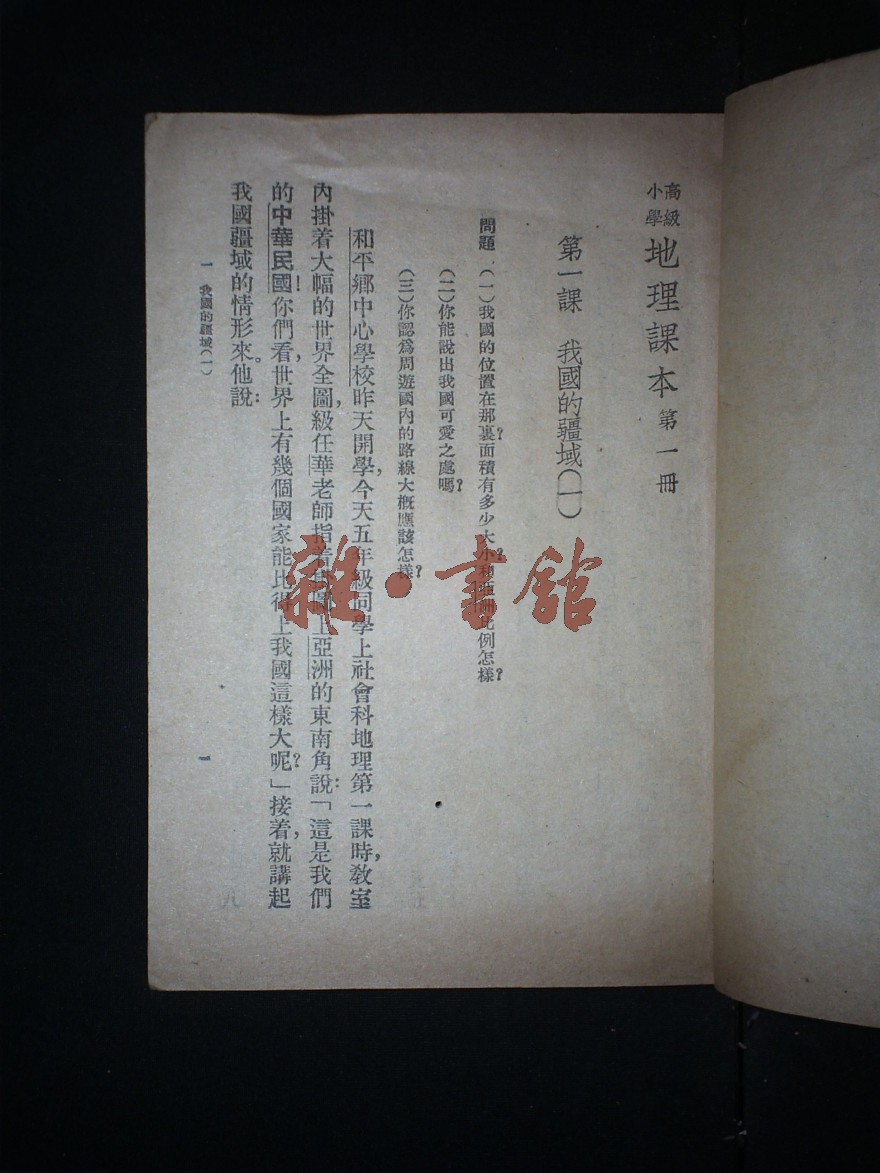 高級小學 地理課本 第一冊
第一課　我國的疆域(一)
問題　(一)我國的位置在那裏？面積有多少大小？和亞洲比例怎樣？
(二)你能說出我國可愛之處嗎？
(三)你認爲周遊國內的路線大概應該怎樣？
和平鄉中心學校昨天開學，今天五年級同學上社會科地理第一課時，教室
內掛着大幅的世界全圖，級任華老師指着圖上亞洲的東南角說：「這是我們
的中華民國！你們看，世界上有幾個國家能比得上我國這樣大呢？」接着，就講起
我國疆域的情形來。他說：
一　我國的疆域(一)
一
雜·書館